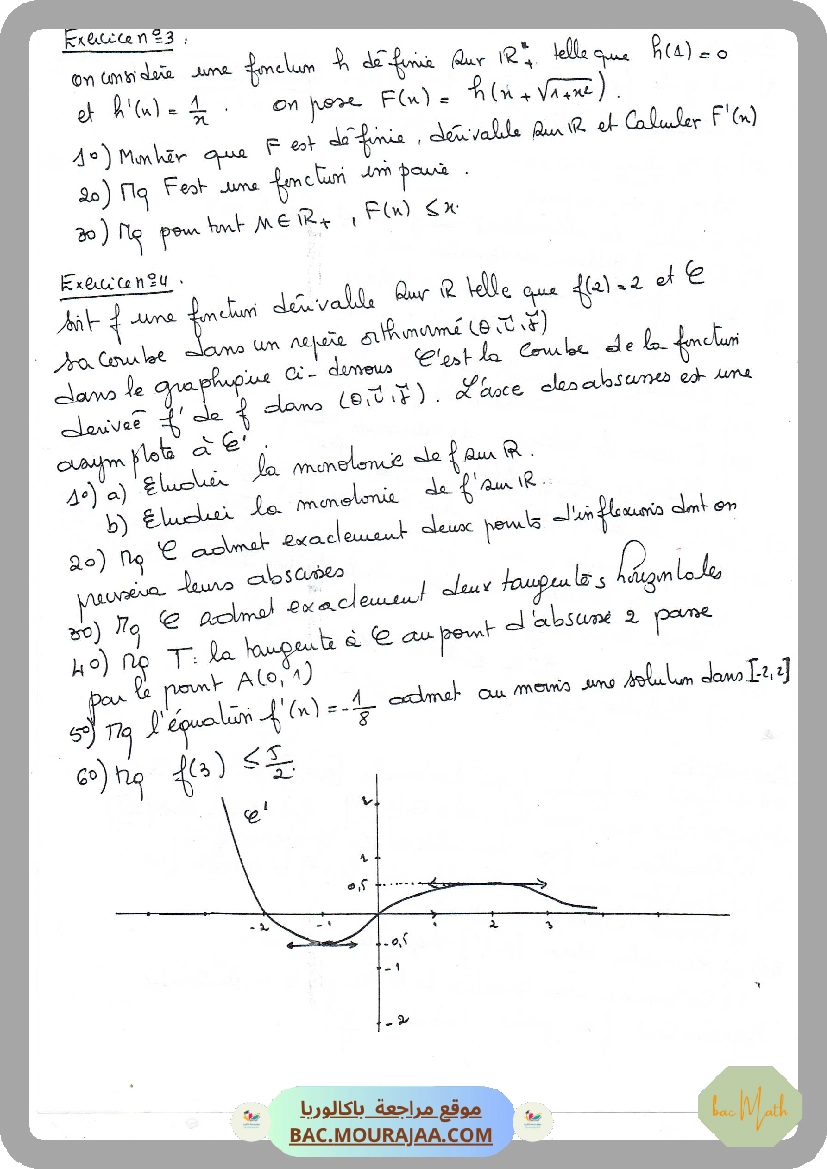 Exercice n°3 :
on considère une fonction h définie sur IR*+ telle que h(1) = 0
et h'(x) = 1/x . on pose F(x) = h(x + √1+x²) .
1°) Montrer que F est définie, dérivable sur IR et Calculer F'(x)
2o) Mq F est une fonction impaire .
3o) Mq pour tout x ∈ IR+ , F(x) ≤ x.
Exercice n°4 .
Soit f une fonction dérivable sur IR telle que f(2) = 2 et C
sa courbe dans un repère orthonormé (O, i, j)
dans le graphique ci-dessous C' est la courbe de la fonction
derivée f' de f dans (O, i, j) . L'axe des abscisses est une
asymptote à C'
1°) a) Etudier la monotonie de f sur IR .
b) Etudier la monotonie de f' sur IR .
2o) Mq C admet exactement deux points d'inflexions dont on
précisera leurs abscisses
3o) Mq C admet exactement deux tangentes horizontales
4o) Mq T : la tangente à C au point d'abscisse 2 passe
par le point A(0, 1)
5o) Mq l'équation f'(x) = -1/8 admet au moins une solution dans [-2, 2]
6o) Mq f(3) ≤ 5/2.
C'
2
1
0,5
-2 -1 1 2 3
-0,5
-1
-2
موقع مراجعة باكالوريا
BAC.MOURAJAA.COM
bac Math